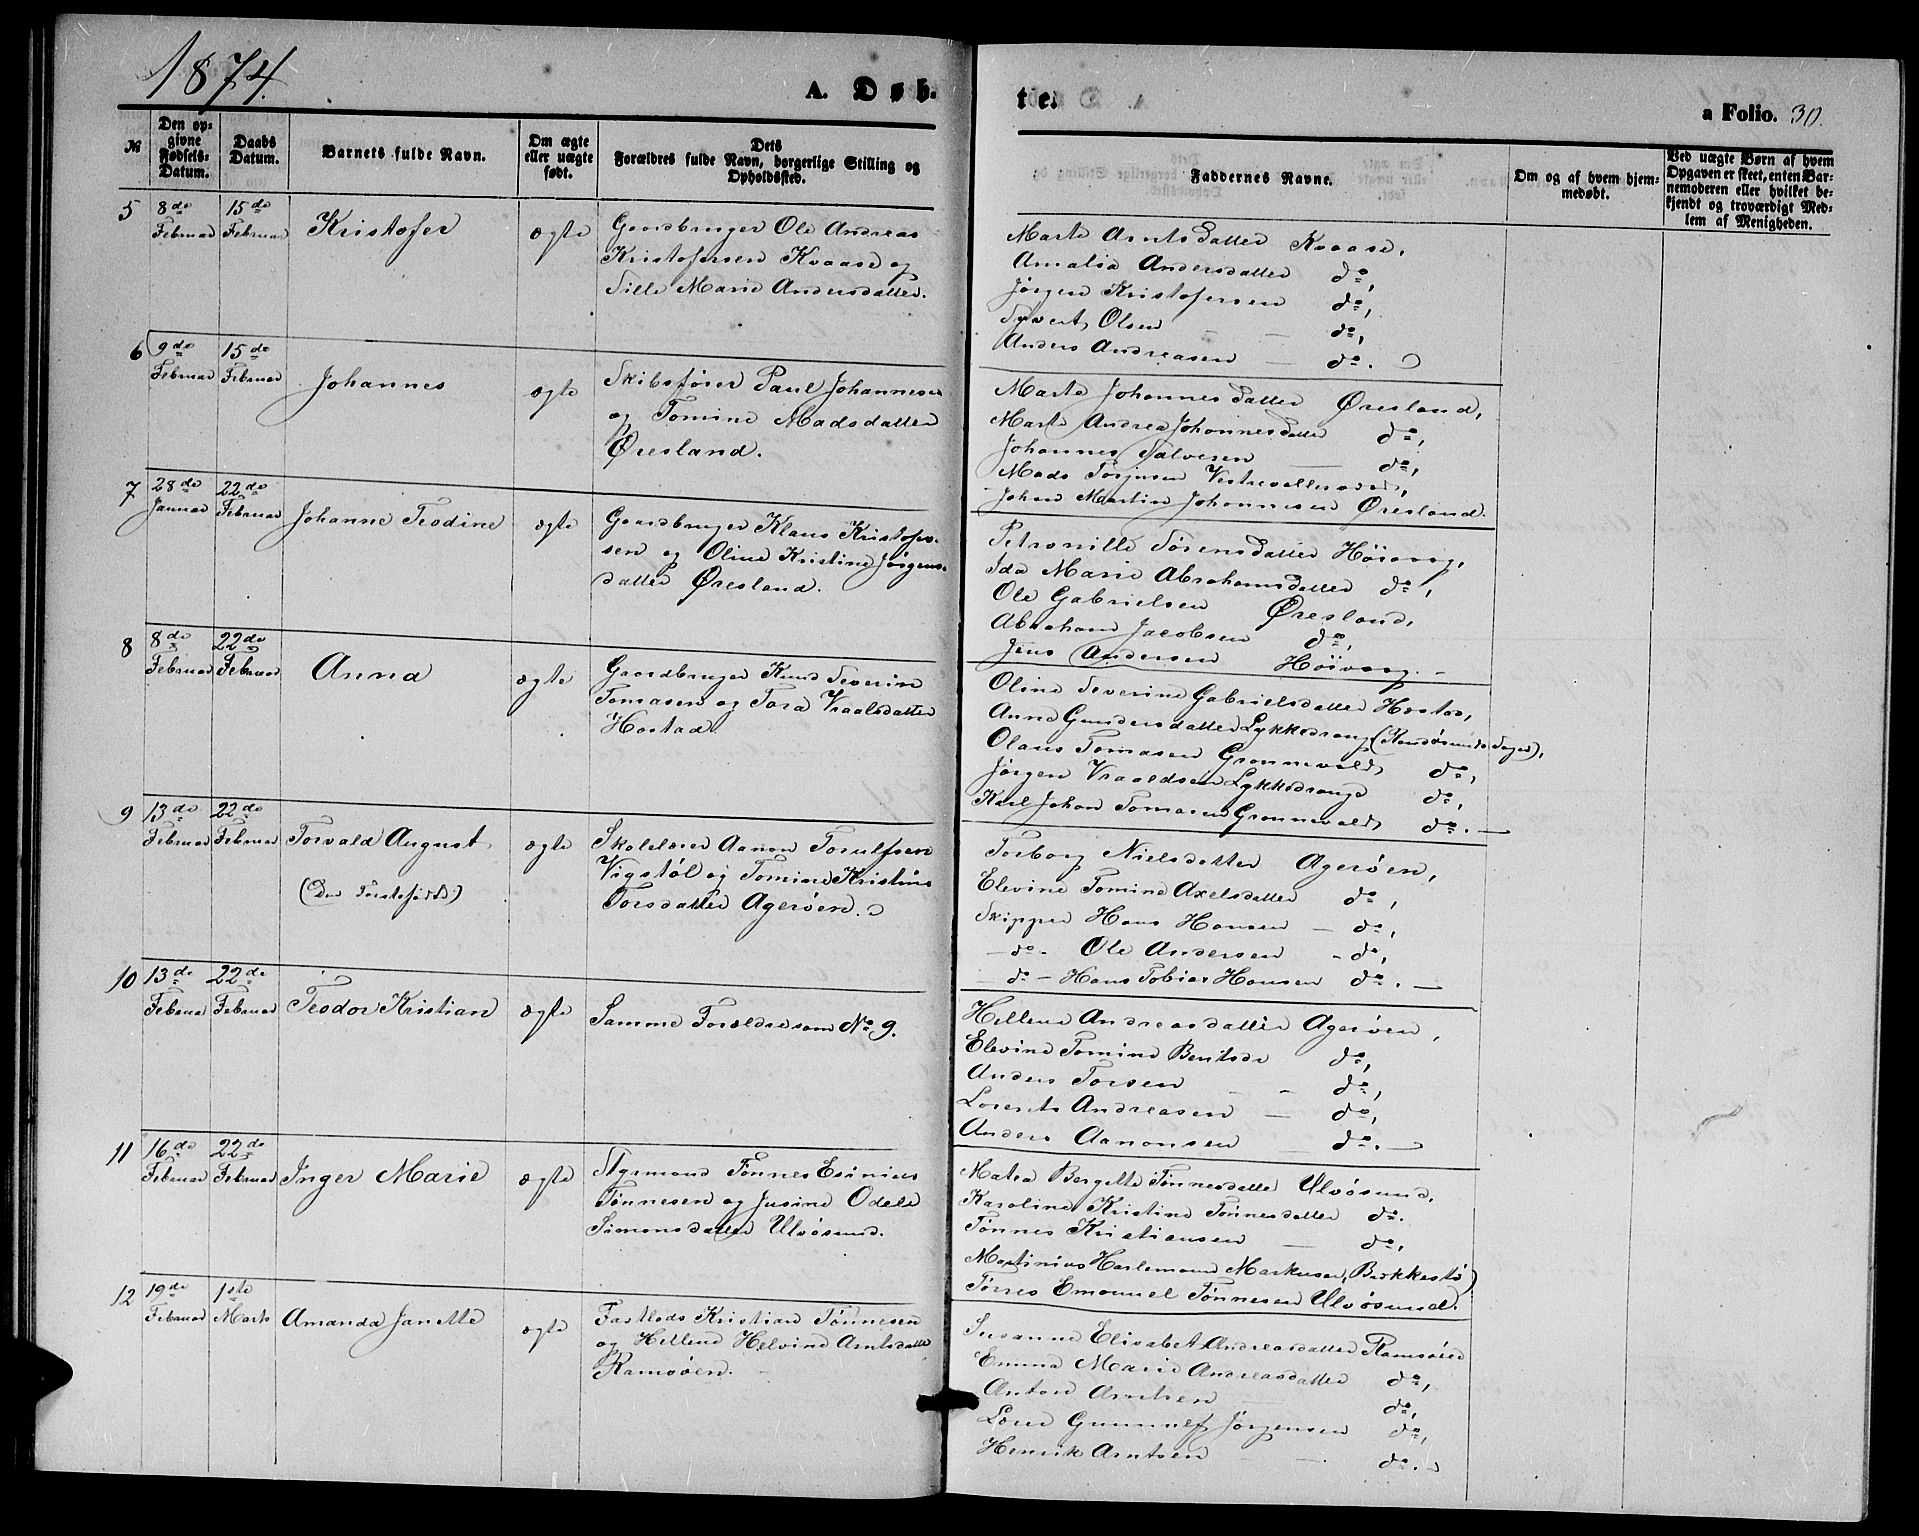 1874.
A. Døb-
№
Den op-
givne
Fødsels-
Datum.
Daabs
Datum.
Barnets fulde Navn.
Om ægte
eller uægte
født.
Dets
Forældres fulde Navn, borgerlige Stilling og
Opholdssted.
5 8de Februar 15de Februar Kristofer ægte Gaardbruger Ole Andreas
Kristofersen Kvaase og
Sille Marie Andersdatter.
6 9de Februar 15de Februar Johannes ægte Skibsfører Paul Johannesen
og Tomine Madsdatter
Øresland.
7 28de Januar 22de Februar Johanne Teodine ægte Gaardbruger Klaus Kristofer-
sen og Oline Kristine Jørgens-
datter Øresland.
8 8de Februar 22de Februar Anna ægte Gaardbruger Knud Severin
Tomasen og Tora Vraalsdatter
Hæstad.
9 13de Februar 22de Februar Torvald August ægte Skolelærer Aanon Torulfsen
(Den Førstefødte) Vigstøl og Tomine Kristine
Torsdatter Agerøen.
10 13de Februar 22de Februar Teodor Kristian ægte Samme Forældre som No 9.
11 16de Februar 22de Februar Inger Marie ægte Styrmand Tønnes Esinius
Tønnesen og Jusine Odele
Simonsdatter Ulvøsund.
12 19de Februar 1ste Marts Amanda Janette ægte Fastlods Kristian Tønnesen
og Hellene Helvine Arntsdatter
Ramsøen.
te.
a Folio. 30.
Faddernes Navne.
Om og af hvem hjem-
medøbt.
Ved uægte Børn af hvem
Opgaven er skeet, enten Bar-
nemoderen eller hvilket be-
kjendt og troværdigt Med-
lem af Menigheden.
Marte Arntsdatter Kvaase,
Amalia Andersdatter do,
Jørgen Kristofersen do,
Syvert Olsen do,
Anders Andreasen do.
Marte Johannesdatter Øresland,
Marte Andrea Johannesdatter do,
Johannes Salvesen do,
Mads Torjusen
Johan Martin Johannesen Øresland.
Petronille Sørensdatter Høivaag,
Ida Marie Abrahamsdatter do,
Ole Gabrielsen Øresland,
Abraham Jacobsen do,
Jens Andersen Høivaag.
Oline Severine Gabrielsdatter Hæstad,
Anne Gundersdatter Lykkedrang (Randøsunds Sogn),
Olaus Tomasen Grønnevold, do,
Jørgen Vraaldsen Lykkedrang do,
Karl Johan Tomasen Grønnevold, do.
Torborg Nielsdatter Agerøen,
Elevine Tomine Axelsdatter do,
Skipper Hans Hansen do,
do - Ole Andersen do,
do - Hans Tobias Hansen do.
Hellene Andreasdatter Agerøen,
Elevine Tomine Bentsdr do,
Anders Torsen do,
Lorents Andreasen do,
Anders Aanonsen do.
Matea Bergitte Tønnesdatter Ulvøsund,
Karoline Kristine Tønnesdatter do.
Tønnes Kristiansen do,
Martinius Harlemand Markusen, Brekkestø
Tørres Emanuel Tønnesen Ulvøsund.
Susanne Elisabet Andreasdatter Ramsøen
Emma Marie Andreasdatter do,
Anton Arntsen do,
Lars Gunnulf Jørgensen do,
Henrik Arntsen do.